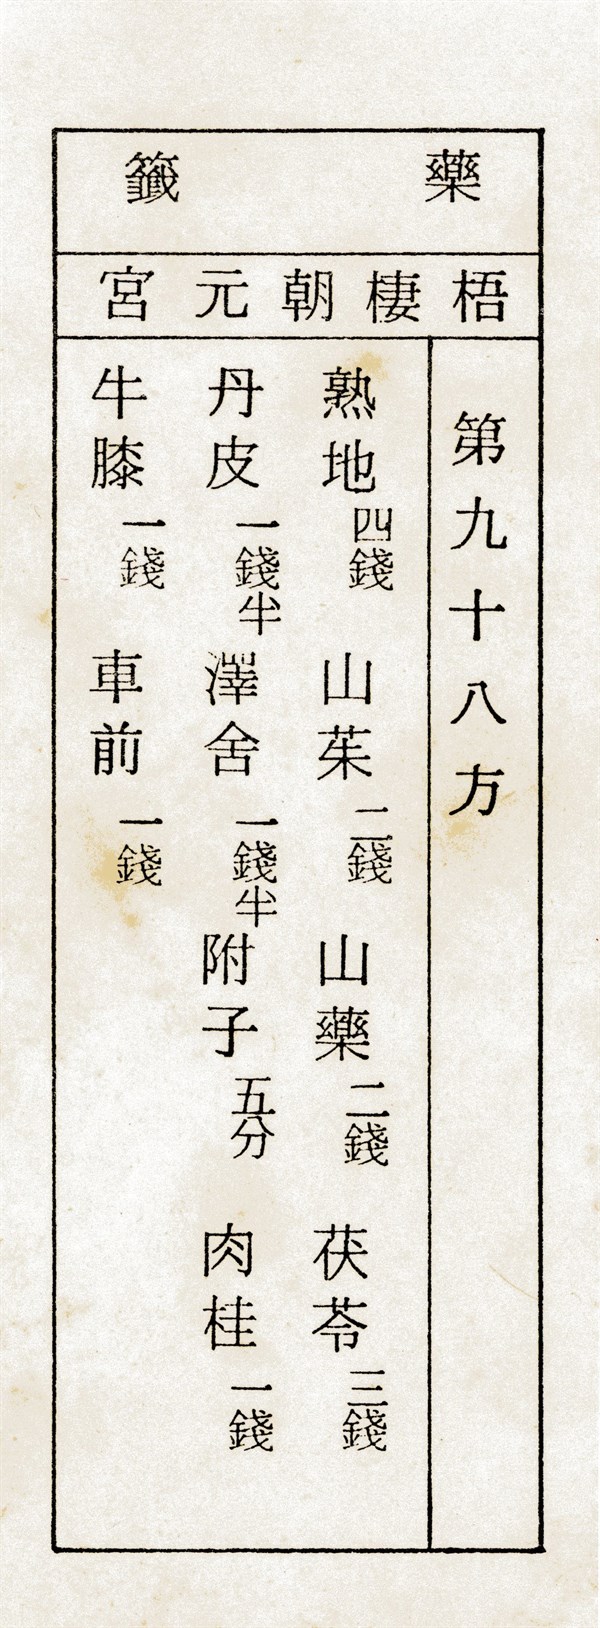 藥籤
梧棲朝元宮
第九十八方
熟地四錢 山茱二錢 山藥二錢 茯苓三錢
丹皮一錢半 澤舍一錢半 附子五分 肉桂一錢
牛膝一錢 車前一錢